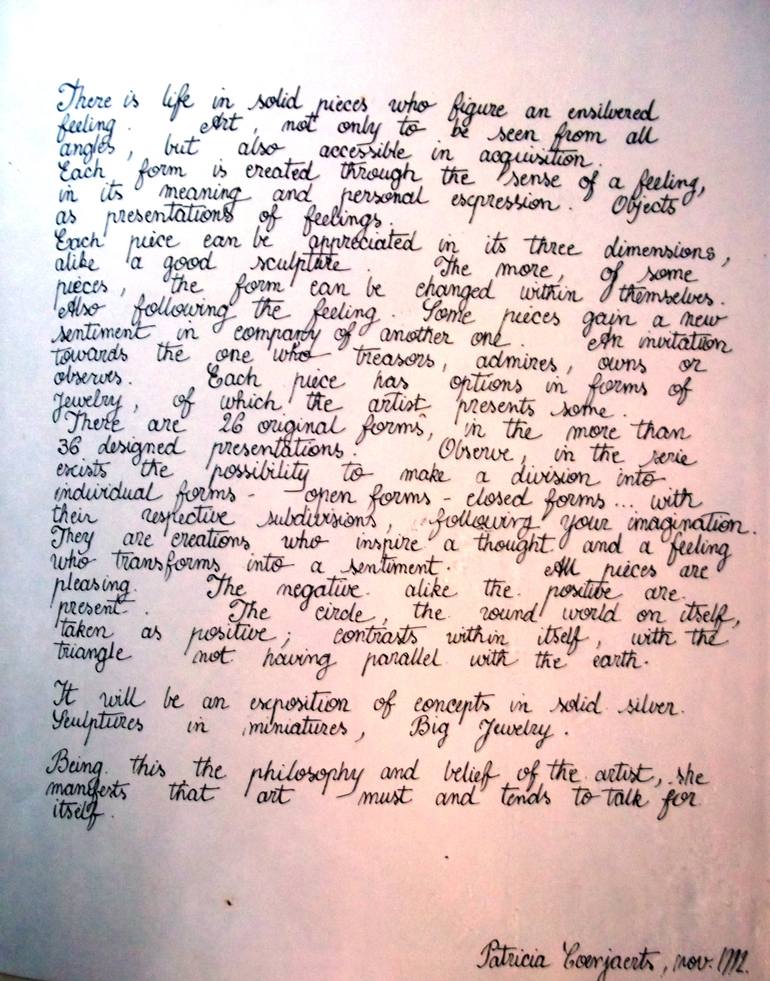 There is life in solid pieces who figure an ensilvered
feeling. Art, not only to be seen from all
angles, but also accessible in acquisition.
Each form is created through the sense of a feeling,
in its meaning and personal expression. Objects
as presentations of feelings.
Each piece can be appreciated in its three dimensions,
alike a good sculpture. The more, of some
pieces, the form can be changed within themselves.
Also following the feeling. Some pieces gain a new
sentiment in company of another one. An invitation
towards the one who treasors, admires, owns or
observes. Each piece has options in forms of
Jewelry, of which the artist presents some.
There are 26 original forms, in the more than
36 designed presentations. Observe, in the serie
excists the possibility to make a division into
individual forms - open forms - closed forms... with
their respective subdivisions, following your imagination.
They are creations who inspire a thought and a feeling
who transforms into a sentiment. All pieces are
pleasing. The negative alike the positive are
present. The circle, the round world on itself,
taken as positive; contrasts within itself, with the
triangle not having parallel with the earth.
It will be an exposition of concepts in solid silver.
Sculptures in miniatures, Big Jewelry.
Being this the philosophy and belief of the artist, she
manifests that art must and tends to talk for
itself.
Patricia Coenjaerts, nov.